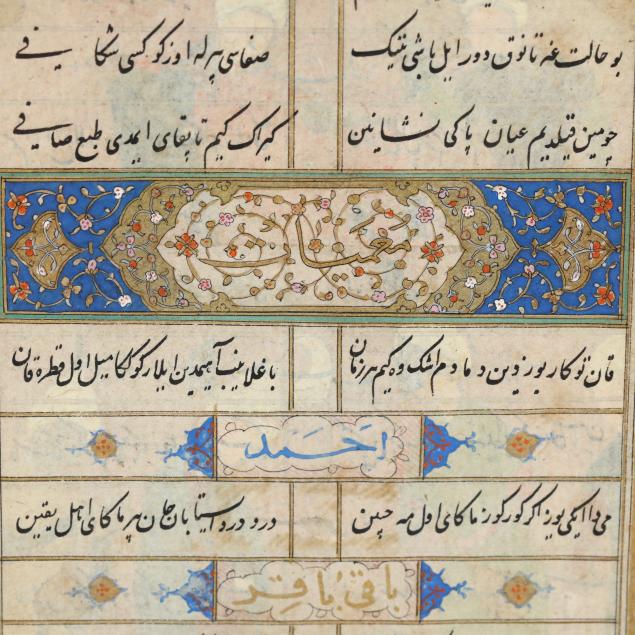 بو حالت غه تانوق دور ایل باشی نینک
صفاسی بیرله اوزکو کسی شکا فی
چومین قیلدیم عیان پاکی نشانین
کیراک کیم تاپقای ایدی طبع صافی
معمیات
قان توکار یوزدین دمادم اشک وه کیم هرزمان
باغلانیب آهیمدین ایلار کوککا میل اول قطره قان
احمد
می دا ایکی یوز اکر کورکوزماکای اول مه چین
درد و درد ایستابان جان بیرماکای اهل یقین
باقی باقر